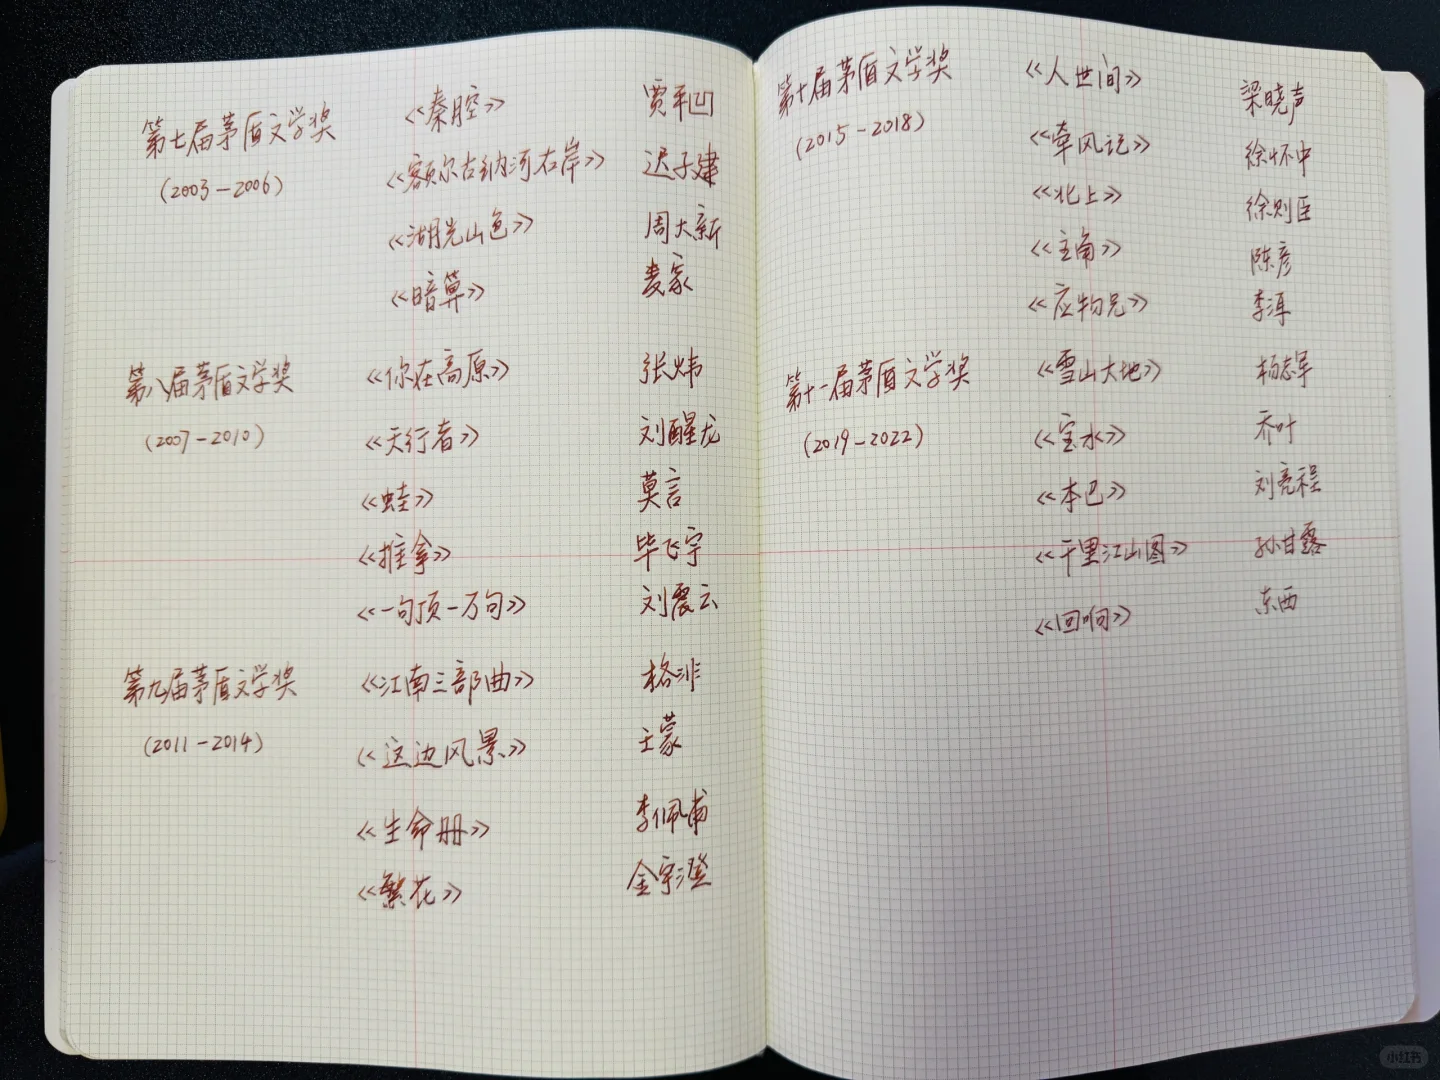 第七届茅盾文学奖 《秦腔》 贾平凹
(2003-2006) 《额尔古纳河右岸》 迟子建
《湖光山色》 周大新
《暗算》 麦家
第八届茅盾文学奖 《你在高原》 张炜
(2007-2010) 《天行者》 刘醒龙
《蛙》 莫言
《推拿》 毕飞宇
《一句顶一万句》 刘震云
第九届茅盾文学奖 《江南三部曲》 格非
(2011-2014) 《这边风景》 王蒙
《生命册》 李佩甫
《繁花》 金宇澄
第十届茅盾文学奖 《人世间》 梁晓声
(2015-2018) 《牵风记》 徐怀中
《北上》 徐则臣
《主角》 陈彦
《应物兄》 李洱
第十一届茅盾文学奖 《雪山大地》 杨志军
(2019-2022) 《宝水》 乔叶
《本巴》 刘亮程
《千里江山图》 孙甘露
《回响》 东西
小红书